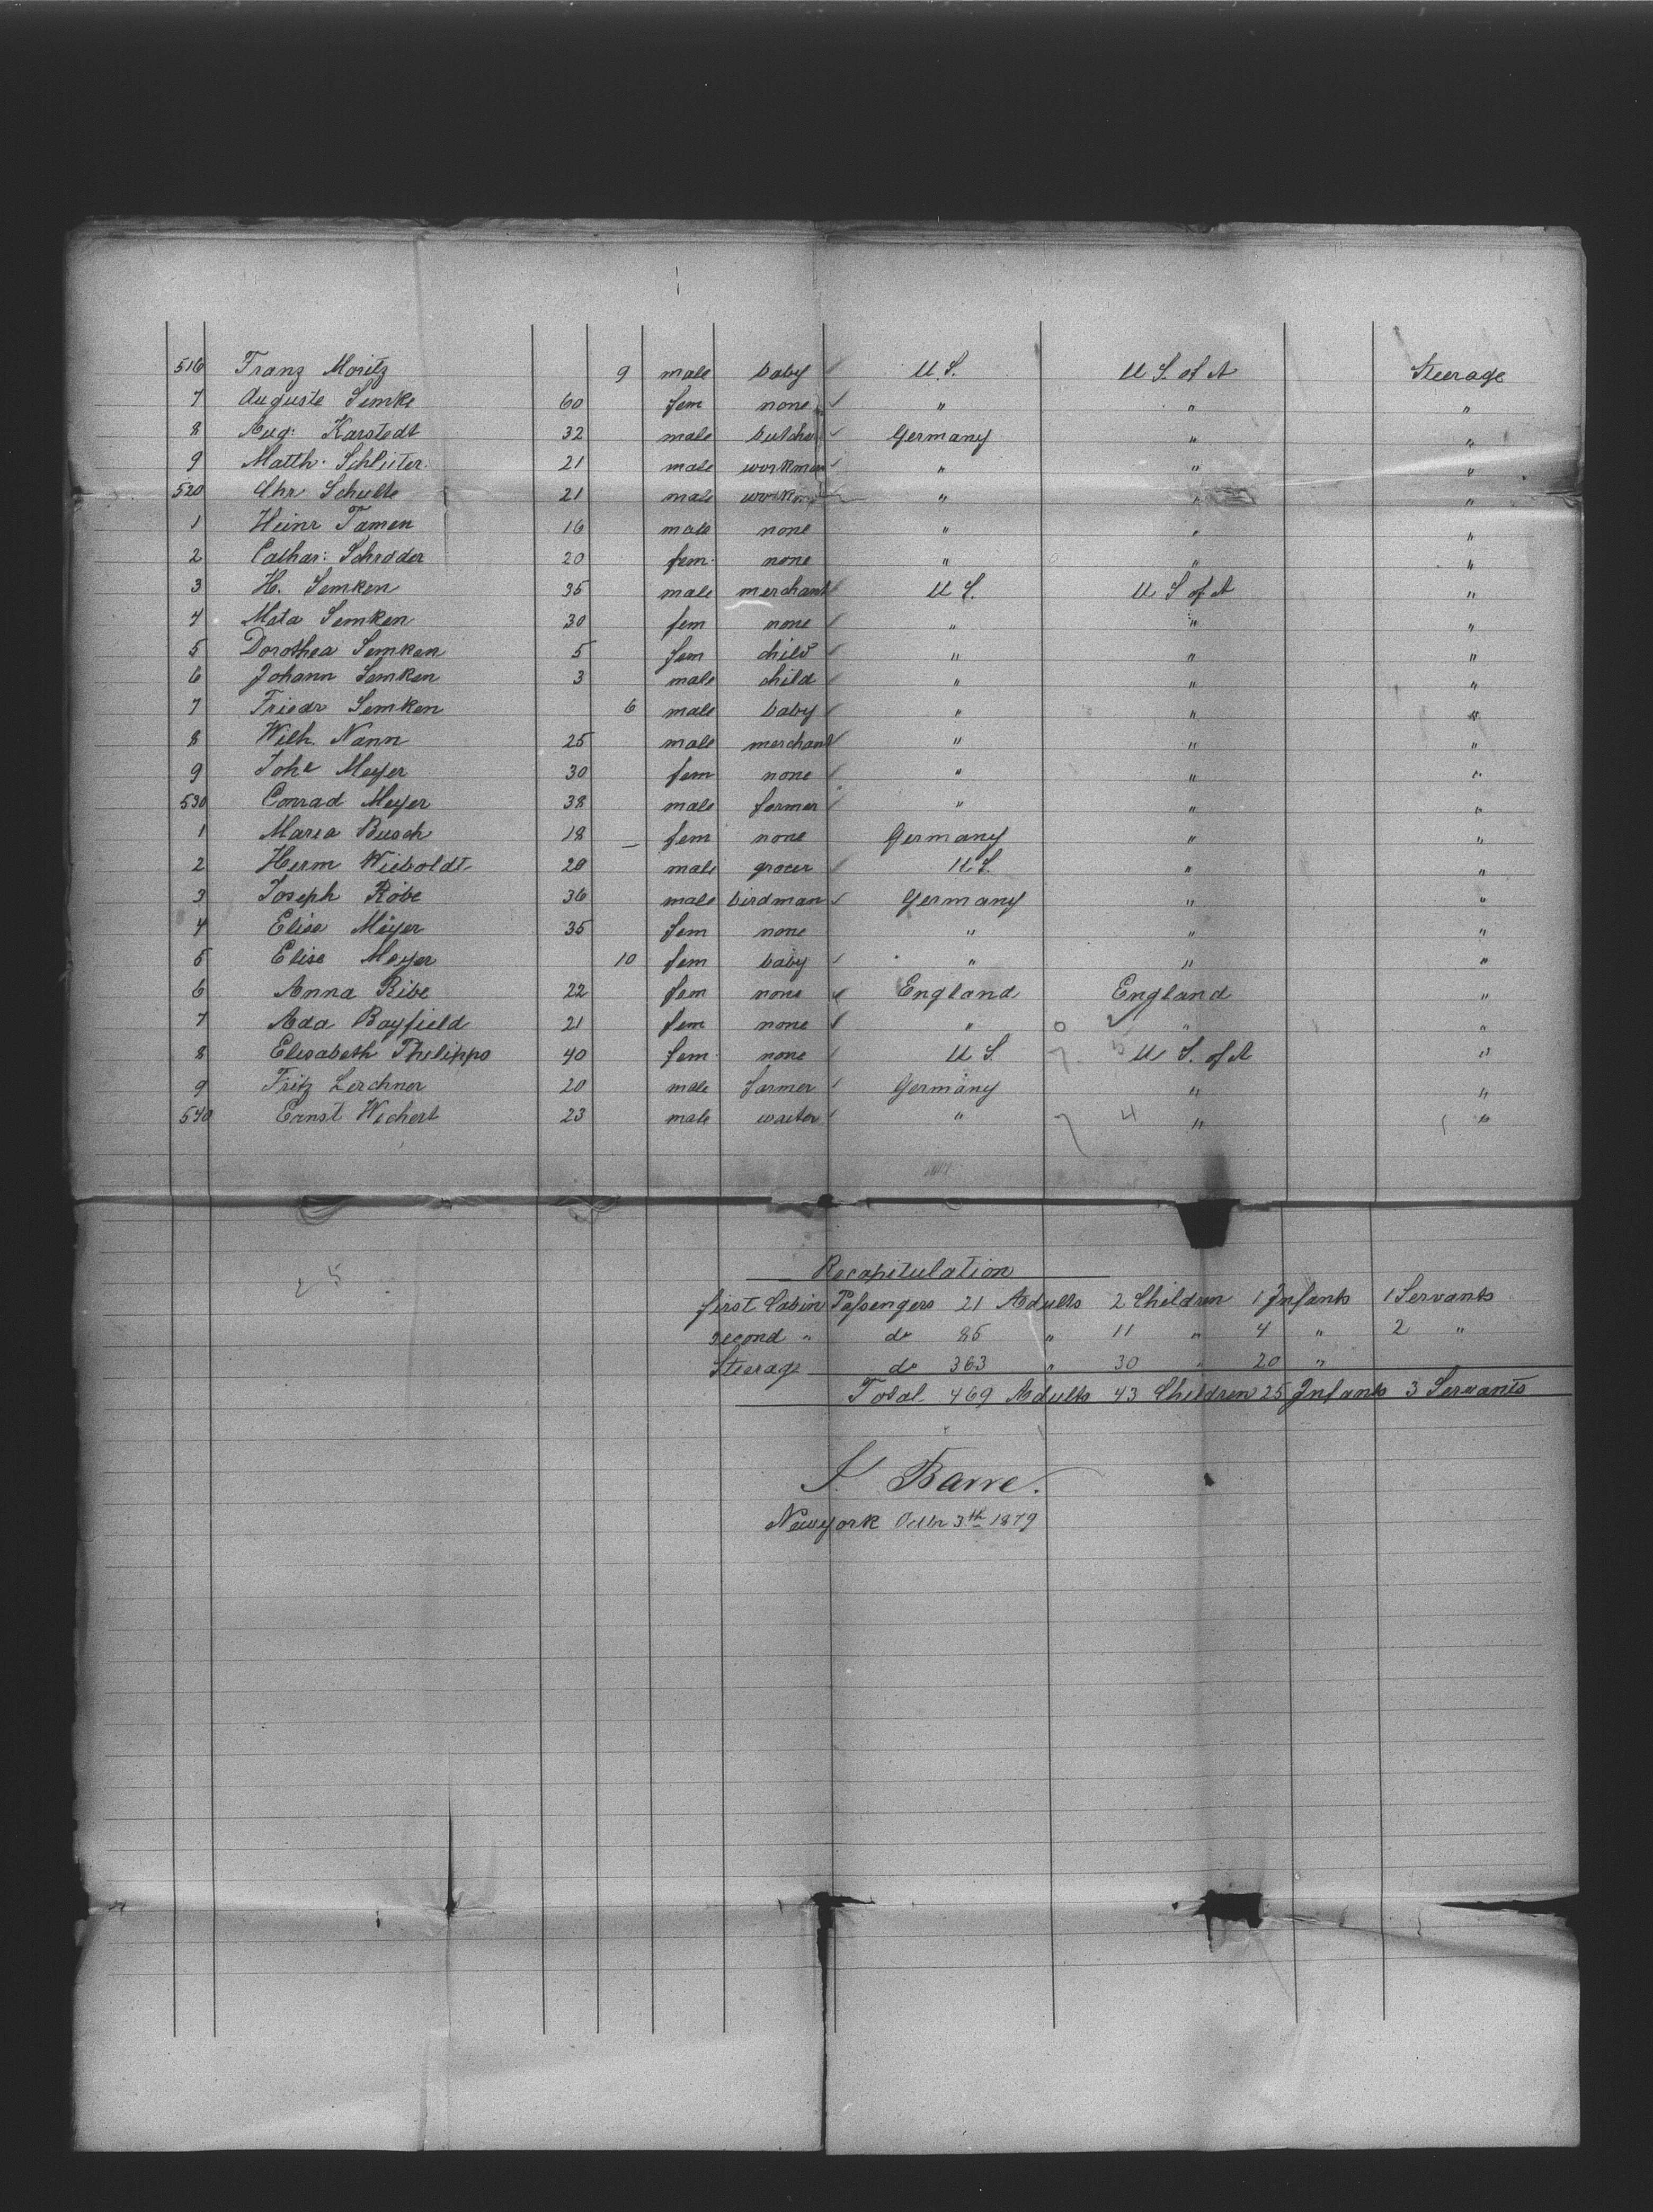 516 Franz Moritz 9 male baby U.S. U S. of A Steerage
7 Auguste Semke 60 fem none " " "
8 Aug: Karstedt 32 male butcher Germany " "
9 Matth. Schlüter 21 male workman " " "
520 Chr Schulte 21 male workm " " "
1 Heinr Tamen 16 male none " " "
2 Cathar: Schröder 20 fem. none " " "
3 H. Semken 35 male merchant U S. U S of A "
4 Meta Semken 30 fem none " " "
5 Dorothea Semken 5 fem child " " "
6 Johann Semken 3 male child " " "
7 Friedr Semken 6 male baby " " "
8 Wilh. Nann 25 male merchant " " "
9 Johe Meyer 30 fem none " " "
530 Conrad Meyer 38 male farmer " " "
1 Maria Busch 18 fem none Germany " "
2 Herm Wieboldt 20 male grocer U S. " "
3 Joseph Röbe 36 male birdman Germany " "
4 Elise Meyer 35 fem none " " "
5 Elise Meyer 10 fem baby " " "
6 Anna Ribe 22 fem none England England "
7 Ada Bayfield 21 fem none " " "
8 Elisabeth Philippo 40 fem. none U S. U S. of A "
9 Fritz Lerchner 20 male farmer Germany " "
540 Ernst Wichert 23 male waiter " " "
Recapitulation
first Cabin Passengers 21 Adults 2 Children 1 Infants 1 Servants
second " do 85 " 11 " 4 " 2 "
Steerage do 363 " 30 " 20 "
Total 469 Adults 43 Children 25 Infants 3 Servants
Barre.
Newyork Octbr 3th 1879